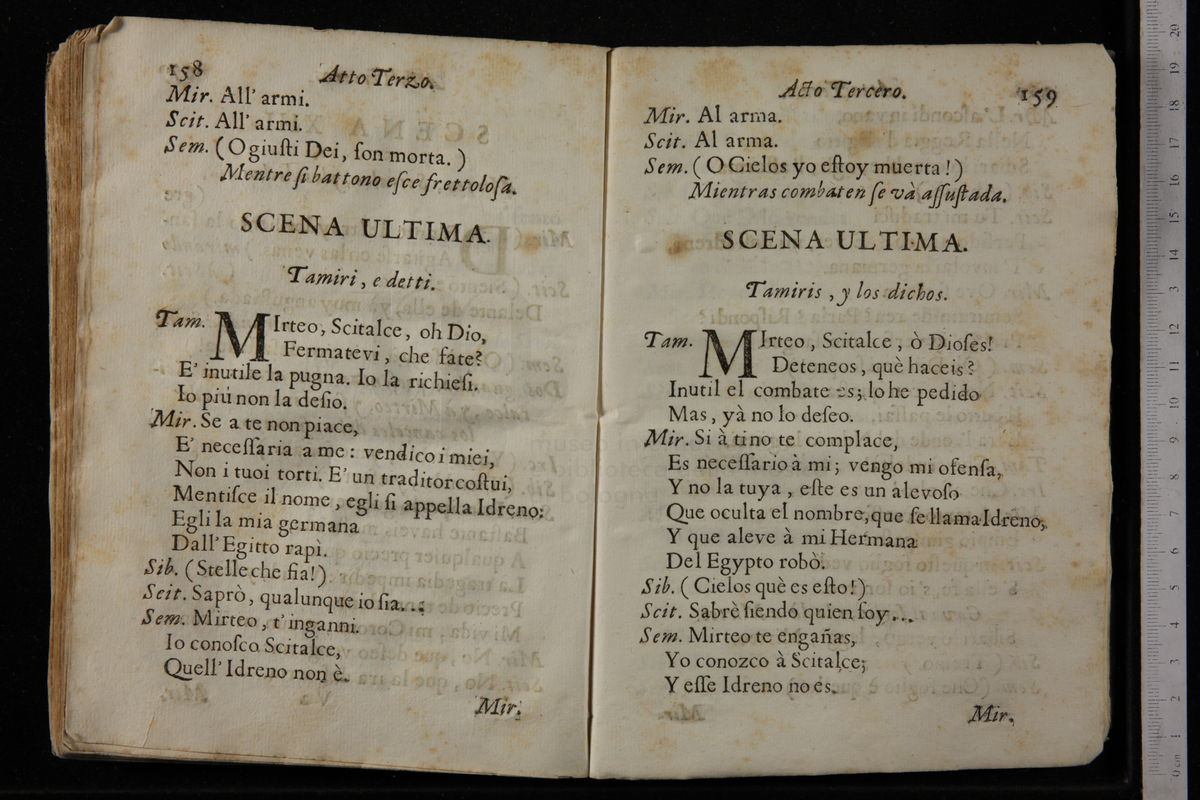 158
Atto Terzo.
Mir. All' armi.
Scit. All' armi.
Sem. (O giuſti Dei, ſon morta.)
Mentre ſi battono eſce frettoloſa.
SCENA ULTIMA.
Tamiri, e detti.
Tam. MIrteo, Scitalce, oh Dio,
Fermatevi, che fate?
E' inutile la pugna. Io la richieſi.
Io più non la deſio.
Mir. Se a te non piace,
E' neceſſaria a me: vendico i miei,
Non i tuoi torti. E' un traditor coſtui,
Mentiſce il nome, egli ſi appella Idreno:
Egli la mia germana
Dall' Egitto rapì.
Sib. (Stelle che ſia!)
Scit. Saprò, qualunque io ſia...
Sem. Mirteo, t' inganni.
Io conoſco Scitalce,
Quell' Idreno non è.
Mir.
Acto Tercero.
159
Mir. Al arma.
Scit. Al arma.
Sem. (O Cielos yo eſtoy muerta!)
Mientras combaten ſe và aſſuſtada.
SCENA ULTIMA.
Tamiris, y los dichos.
Tam. MIrteo, Scitalce, ò Dioſes!
Deteneos, què haceis?
Inutil el combate es; lo he pedido
Mas, yà no lo deſeo.
Mir. Si à ti no te complace,
Es neceſſario à mi; vengo mi ofenſa,
Y no la tuya, eſte es un alevoſo
Que oculta el nombre, que ſe llama Idreno,
Y que aleve à mi Hermana
Del Egypto robò.
Sib. (Cielos què es eſto!)
Scit. Sabrè ſiendo quien ſoy...
Sem. Mirteo te engañas,
Yo conozco à Scitalce;
Y eſſe Idreno no es.
Mir.